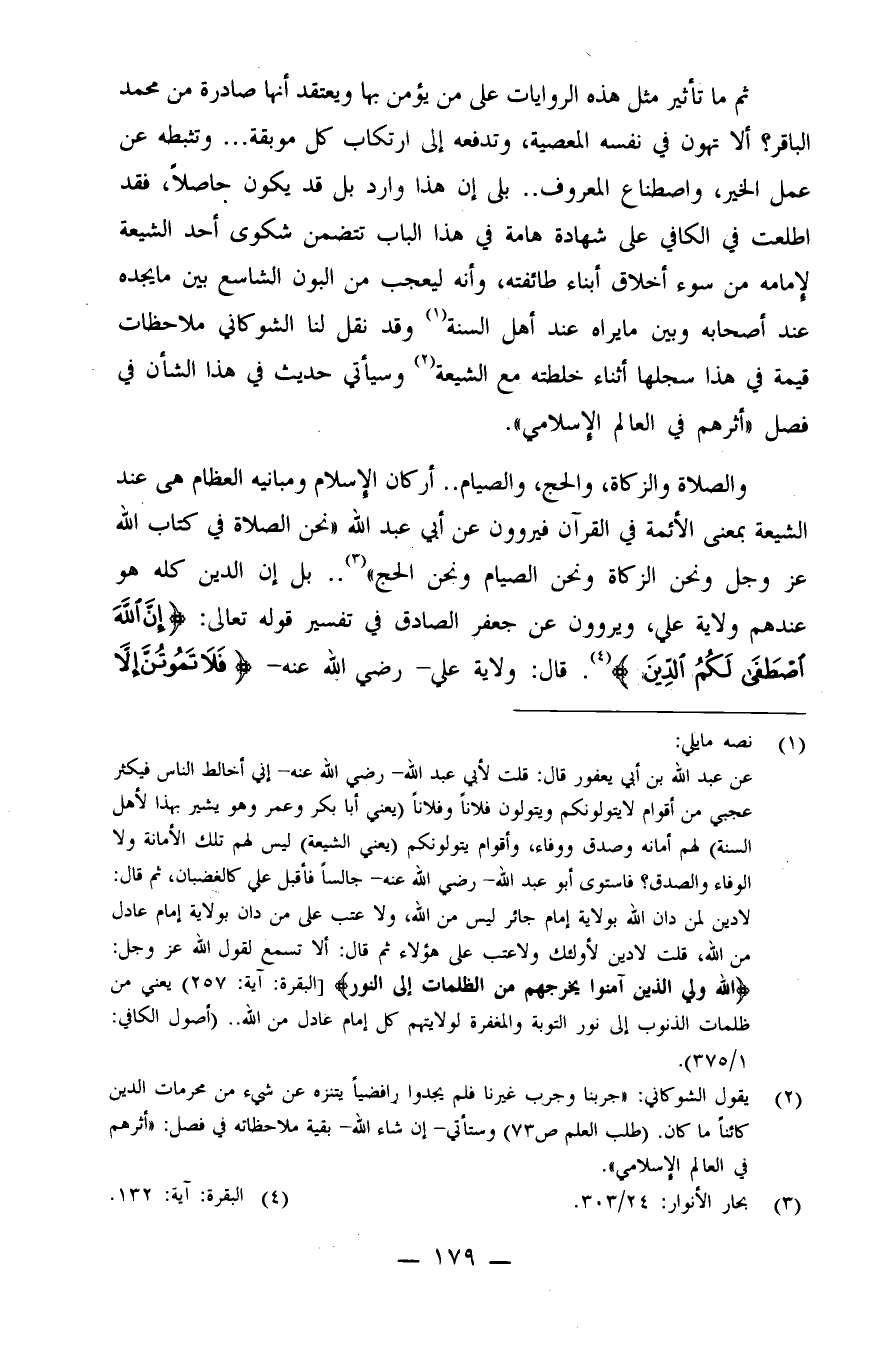 ثم ما تأثير مثل هذه الروايات على من يؤمن بها ويعتقد أنها صادرة من محمد
الباقر؟ ألا تهون في نفسه المعصية، وتدفعه إلى ارتكاب كل موبقة... وتثبطه عن
عمل الخير، واصطناع المعروف.. بلى إن هذا وارد بل قد يكون حاصلاً، فقد
اطلعت في الكافي على شهادة هامة في هذا الباب تتضمن شكوى أحد الشيعة
لإمامه من سوء أخلاق أبناء طائفته، وأنه ليعجب من البون الشاسع بين مايجده
عند أصحابه وبين مايراه عند أهل السنة(١) وقد نقل لنا الشوكاني ملاحظات
قيمة في هذا سجلها أثناء خلطته مع الشيعة(٢) وسيأتي حديث في هذا الشأن في
فصل «أثرهم في العالم الإسلامي».
والصلاة والزكاة، والحج، والصيام.. أركان الإسلام ومبانيه العظام هى عند
الشيعة بمعنى الأئمة في القرآن فيروون عن أبي عبد الله «نحن الصلاة في كتاب الله
عز وجل ونحن الزكاة ونحن الصيام ونحن الحج»(٣).. بل إن الدين كله هو
عندهم ولاية علي، ويروون عن جعفر الصادق في تفسير قوله تعالى: ﴿إِنَّ ٱللَّهَ
ٱصْطَفَىٰ لَكُمُ ٱلدِّينَ﴾(٤). قال: ولاية علي– رضي الله عنه– ﴿فَلَا تَمُوتُنَّ إِلَّا
(١) نصه مايلي:
عن عبد الله بن أبي يعفور قال: قلت لأبي عبد الله– رضي الله عنه– إني أخالط الناس فيكثر
عجبي من أقوام لايتولونكم ويتولون فلاناً وفلاناً (يعني أبا بكر وعمر وهو يشير بهذا لأهل
السنة) لهم أمانه وصدق ووفاء، وأقوام يتولونكم (يعني الشيعة) ليس لهم تلك الأمانة ولا
الوفاء والصدق؟ فاستوى أبو عبد الله– رضي الله عنه– جالساً فأقبل علي كالغضبان، ثم قال:
لادين لمن دان الله بولاية إمام جائر ليس من الله، ولا عتب على من دان بولاية إمام عادل
من الله، قلت لادين لأولئك ولاعتب على هؤلاء ثم قال: ألا تسمع لقول الله عز وجل:
﴿الله ولي الذين آمنوا يخرجهم من الظلمات إلى النور﴾ [البقرة: آية: ٢٥٧) يعني من
ظلمات الذنوب إلى نور التوبة والمغفرة لولايتهم كل إمام عادل من الله.. (أصول الكافي:
٣٧٥/١).
(٢) يقول الشوكاني: «جربنا وجرب غيرنا فلم يجدوا رافضياً يتنزه عن شيء من محرمات الدين
كائناً ما كان. (طلب العلم ص٧٣) وستأتي– إن شاء الله– بقية ملاحظاته في فصل: «أثرهم
في العالم الإسلامي».
(٣) بحار الأنوار: ٣٠٣/٢٤. (٤) البقرة: آية: ١٣٢.
— ١٧٩ —